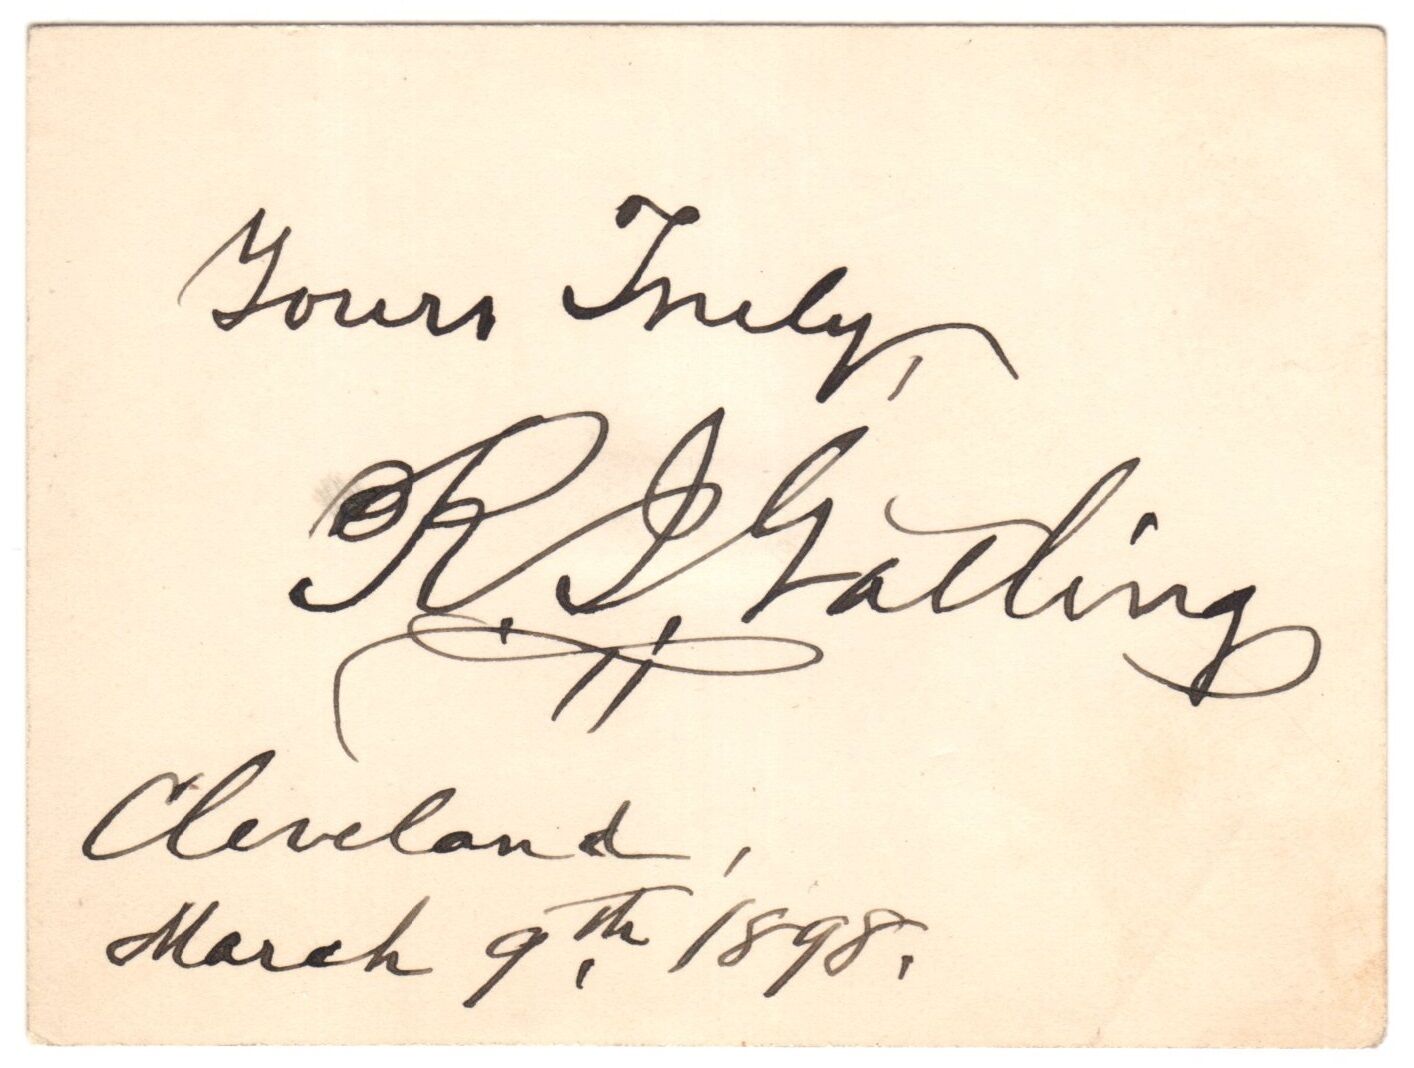 Yours Truly,
R. J. Gatling
Cleveland,
March 9th. 1898.